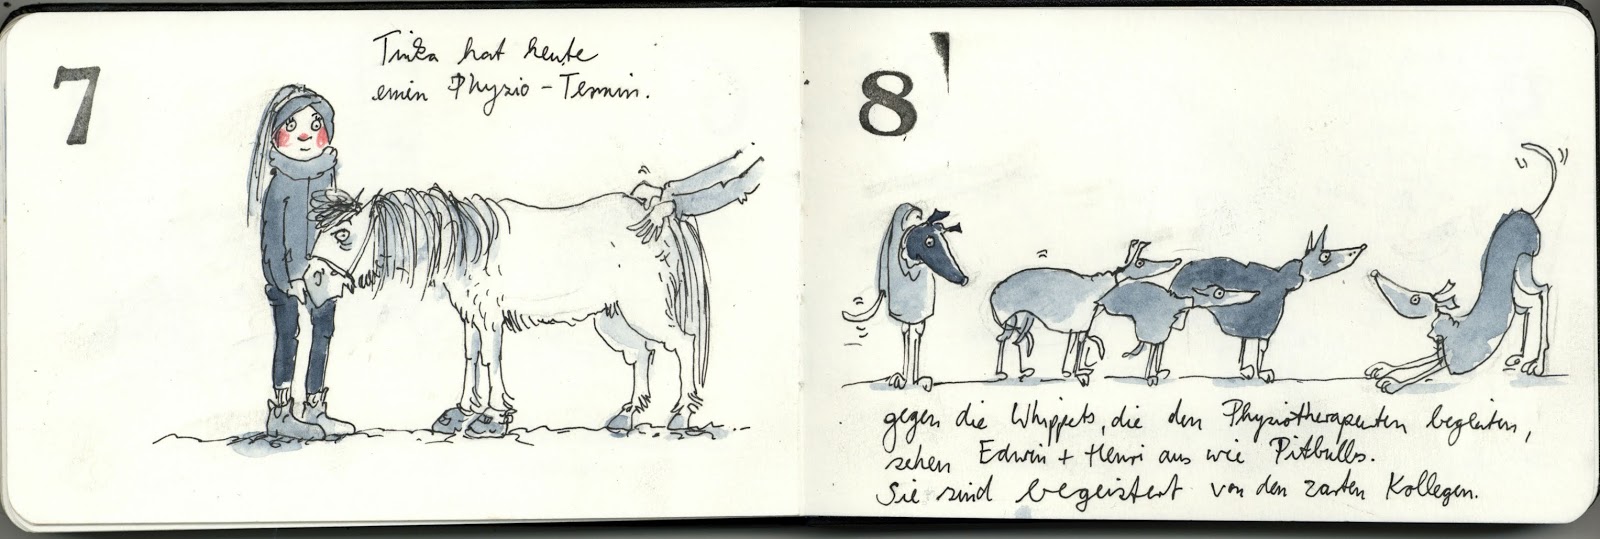 7
Tinka hat heute
einen Physio-Termin.
8
gegen die Whippets, die den Physiotherapeuten begleiten,
sehen Edwin + Henri aus wie Pitbulls.
Sie sind begeistert von den zarten Kollegen.